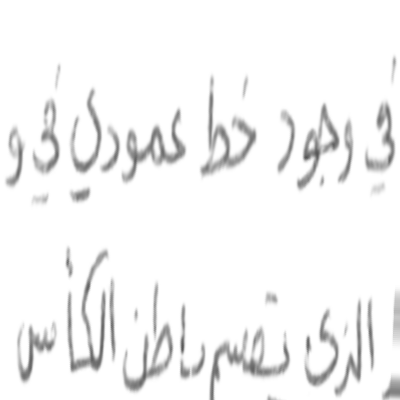 في وجود خط عمودي في و
الذي يقسم باطن الكأس